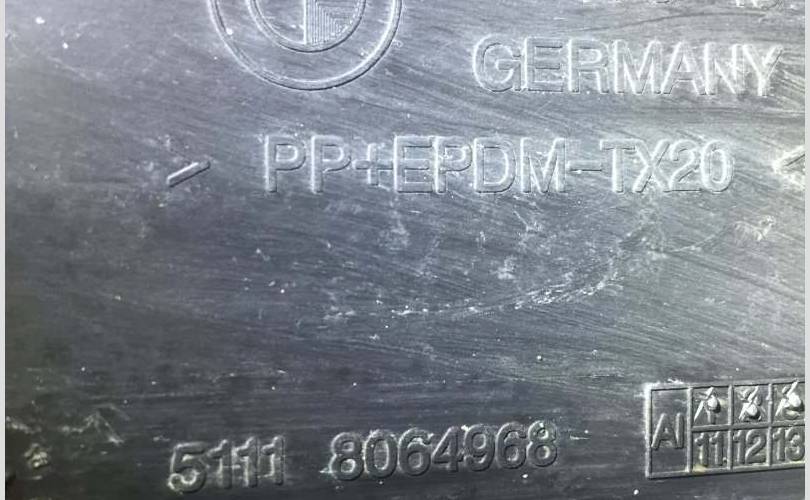 GERMANY
> PP+EPDM-TX20 <
5111 8064968
AI 11 12 13